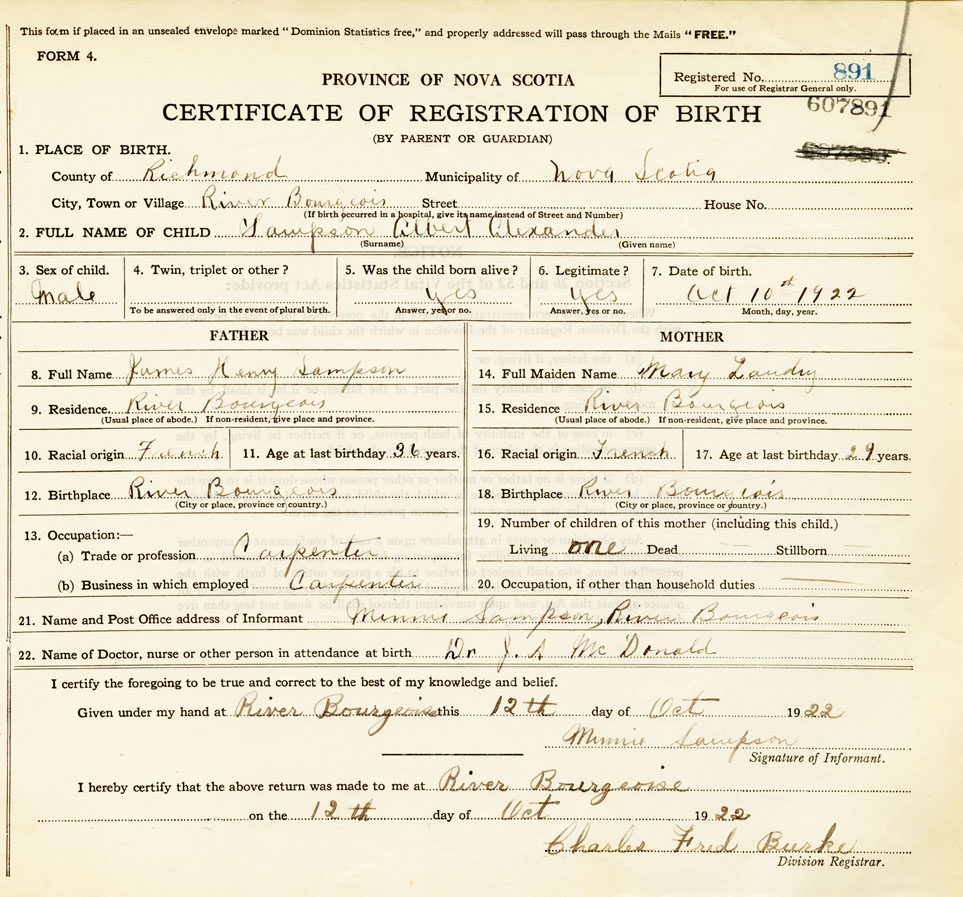 This form if placed in an unsealed envelope marked "Dominion Statistics free," and properly addressed will pass through the Mails "FREE."
FORM 4.
Registered No. 891
For use of Registrar General only.
607891
PROVINCE OF NOVA SCOTIA
CERTIFICATE OF REGISTRATION OF BIRTH
(BY PARENT OR GUARDIAN)
1. PLACE OF BIRTH.
County of Richmond Municipality of Nova Scotia
City, Town or Village River Bourgeois Street House No.
(If birth occurred in a hospital, give its name instead of Street and Number)
2. FULL NAME OF CHILD Sampson Albert Alexander
(Surname) (Given name)
3. Sex of child. 4. Twin, triplet or other? 5. Was the child born alive? 6. Legitimate? 7. Date of birth.
Male yes Yes Oct 10st 1922
To be answered only in the event of plural birth. Answer, yes or no. Answer, yes or no. Month, day, year.
FATHER
8. Full Name James Henry Sampson
9. Residence. River Bourgeois
(Usual place of abode.) If non-resident, give place and province.
10. Racial origin French 11. Age at last birthday 36 years.
12. Birthplace River Bourgeois
(City or place, province or country.)
13. Occupation:—
(a) Trade or profession Carpenter
(b) Business in which employed Carpenter
MOTHER
14. Full Maiden Name Mary Landry
15. Residence River Bourgeois
(Usual place of abode.) If non-resident, give place and province.
16. Racial origin French 17. Age at last birthday 29 years.
18. Birthplace River Bourgeois
(City or place, province or country.)
19. Number of children of this mother (including this child.)
Living one Dead — Stillborn —
20. Occupation, if other than household duties —
21. Name and Post Office address of Informant Minnie Sampson, River Bourgeois
22. Name of Doctor, nurse or other person in attendance at birth Dr J. A McDonald
I certify the foregoing to be true and correct to the best of my knowledge and belief.
Given under my hand at River Bourgeois this 12th day of Oct 1922
Minnie Sampson
Signature of Informant.
I hereby certify that the above return was made to me at River Bourgeoise
on the 12th day of Oct 1922
Charles Fred Burke
Division Registrar.